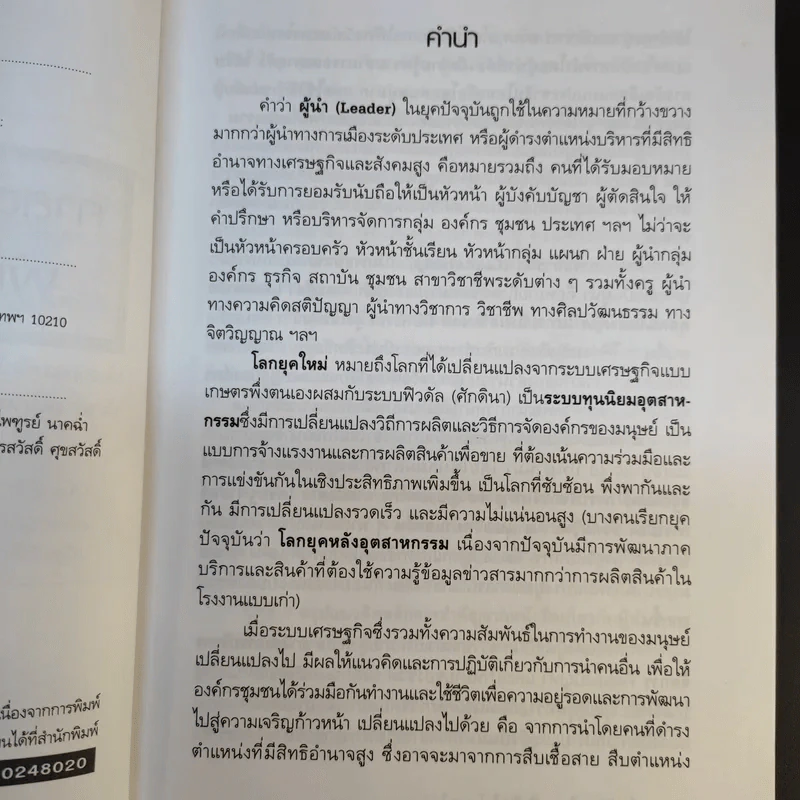 ทพฯ 10210
ไพฑูรย์ นาคฉ่ำ
รสวัสดิ์ ศุขสวัสดิ์
เนื่องจากการพิมพ์
นได้ที่สำนักพิมพ์
0248020
คำนำ
คำว่า ผู้นำ (Leader) ในยุคปัจจุบันถูกใช้ในความหมายที่กว้างขวาง
มากกว่าผู้นำทางการเมืองระดับประเทศ หรือผู้ดำรงตำแหน่งบริหารที่มีสิทธิ
อำนาจทางเศรษฐกิจและสังคมสูง คือหมายรวมถึง คนที่ได้รับมอบหมาย
หรือได้รับการยอมรับนับถือให้เป็นหัวหน้า ผู้บังคับบัญชา ผู้ตัดสินใจ ให้
คำปรึกษา หรือบริหารจัดการกลุ่ม องค์กร ชุมชน ประเทศ ฯลฯ ไม่ว่าจะ
เป็นหัวหน้าครอบครัว หัวหน้าชั้นเรียน หัวหน้ากลุ่ม แผนก ฝ่าย ผู้นำกลุ่ม
องค์กร ธุรกิจ สถาบัน ชุมชน สาขาวิชาชีพระดับต่าง ๆ รวมทั้งครู ผู้นำ
ทางความคิดสติปัญญา ผู้นำทางวิชาการ วิชาชีพ ทางศิลปวัฒนธรรม ทาง
จิตวิญญาณ ฯลฯ
โลกยุคใหม่ หมายถึงโลกที่ได้เปลี่ยนแปลงจากระบบเศรษฐกิจแบบ
เกษตรพึ่งตนเองผสมกับระบบฟิวดัล (ศักดินา) เป็นระบบทุนนิยมอุตสาห-
กรรมซึ่งมีการเปลี่ยนแปลงวิถีการผลิตและวิธีการจัดองค์กรของมนุษย์ เป็น
แบบการจ้างแรงงานและการผลิตสินค้าเพื่อขาย ที่ต้องเน้นความร่วมมือและ
การแข่งขันกันในเชิงประสิทธิภาพเพิ่มขึ้น เป็นโลกที่ซับซ้อน พึ่งพากันและ
กัน มีการเปลี่ยนแปลงรวดเร็ว และมีความไม่แน่นอนสูง (บางคนเรียกยุค
ปัจจุบันว่า โลกยุคหลังอุตสาหกรรม เนื่องจากปัจจุบันมีการพัฒนาภาค
บริการและสินค้าที่ต้องใช้ความรู้ข้อมูลข่าวสารมากกว่าการผลิตสินค้าใน
โรงงานแบบเก่า)
เมื่อระบบเศรษฐกิจซึ่งรวมทั้งความสัมพันธ์ในการทำงานของมนุษย์
เปลี่ยนแปลงไป มีผลให้แนวคิดและการปฏิบัติเกี่ยวกับการนำคนอื่น เพื่อให้
องค์กรชุมชนได้ร่วมมือกันทำงานและใช้ชีวิตเพื่อความอยู่รอดและการพัฒนา
ไปสู่ความเจริญก้าวหน้า เปลี่ยนแปลงไปด้วย คือ จากการนำโดยคนที่ดำรง
ตำแหน่งที่มีสิทธิอำนาจสูง ซึ่งอาจจะมาจากการสืบเชื้อสาย สืบตำแหน่ง